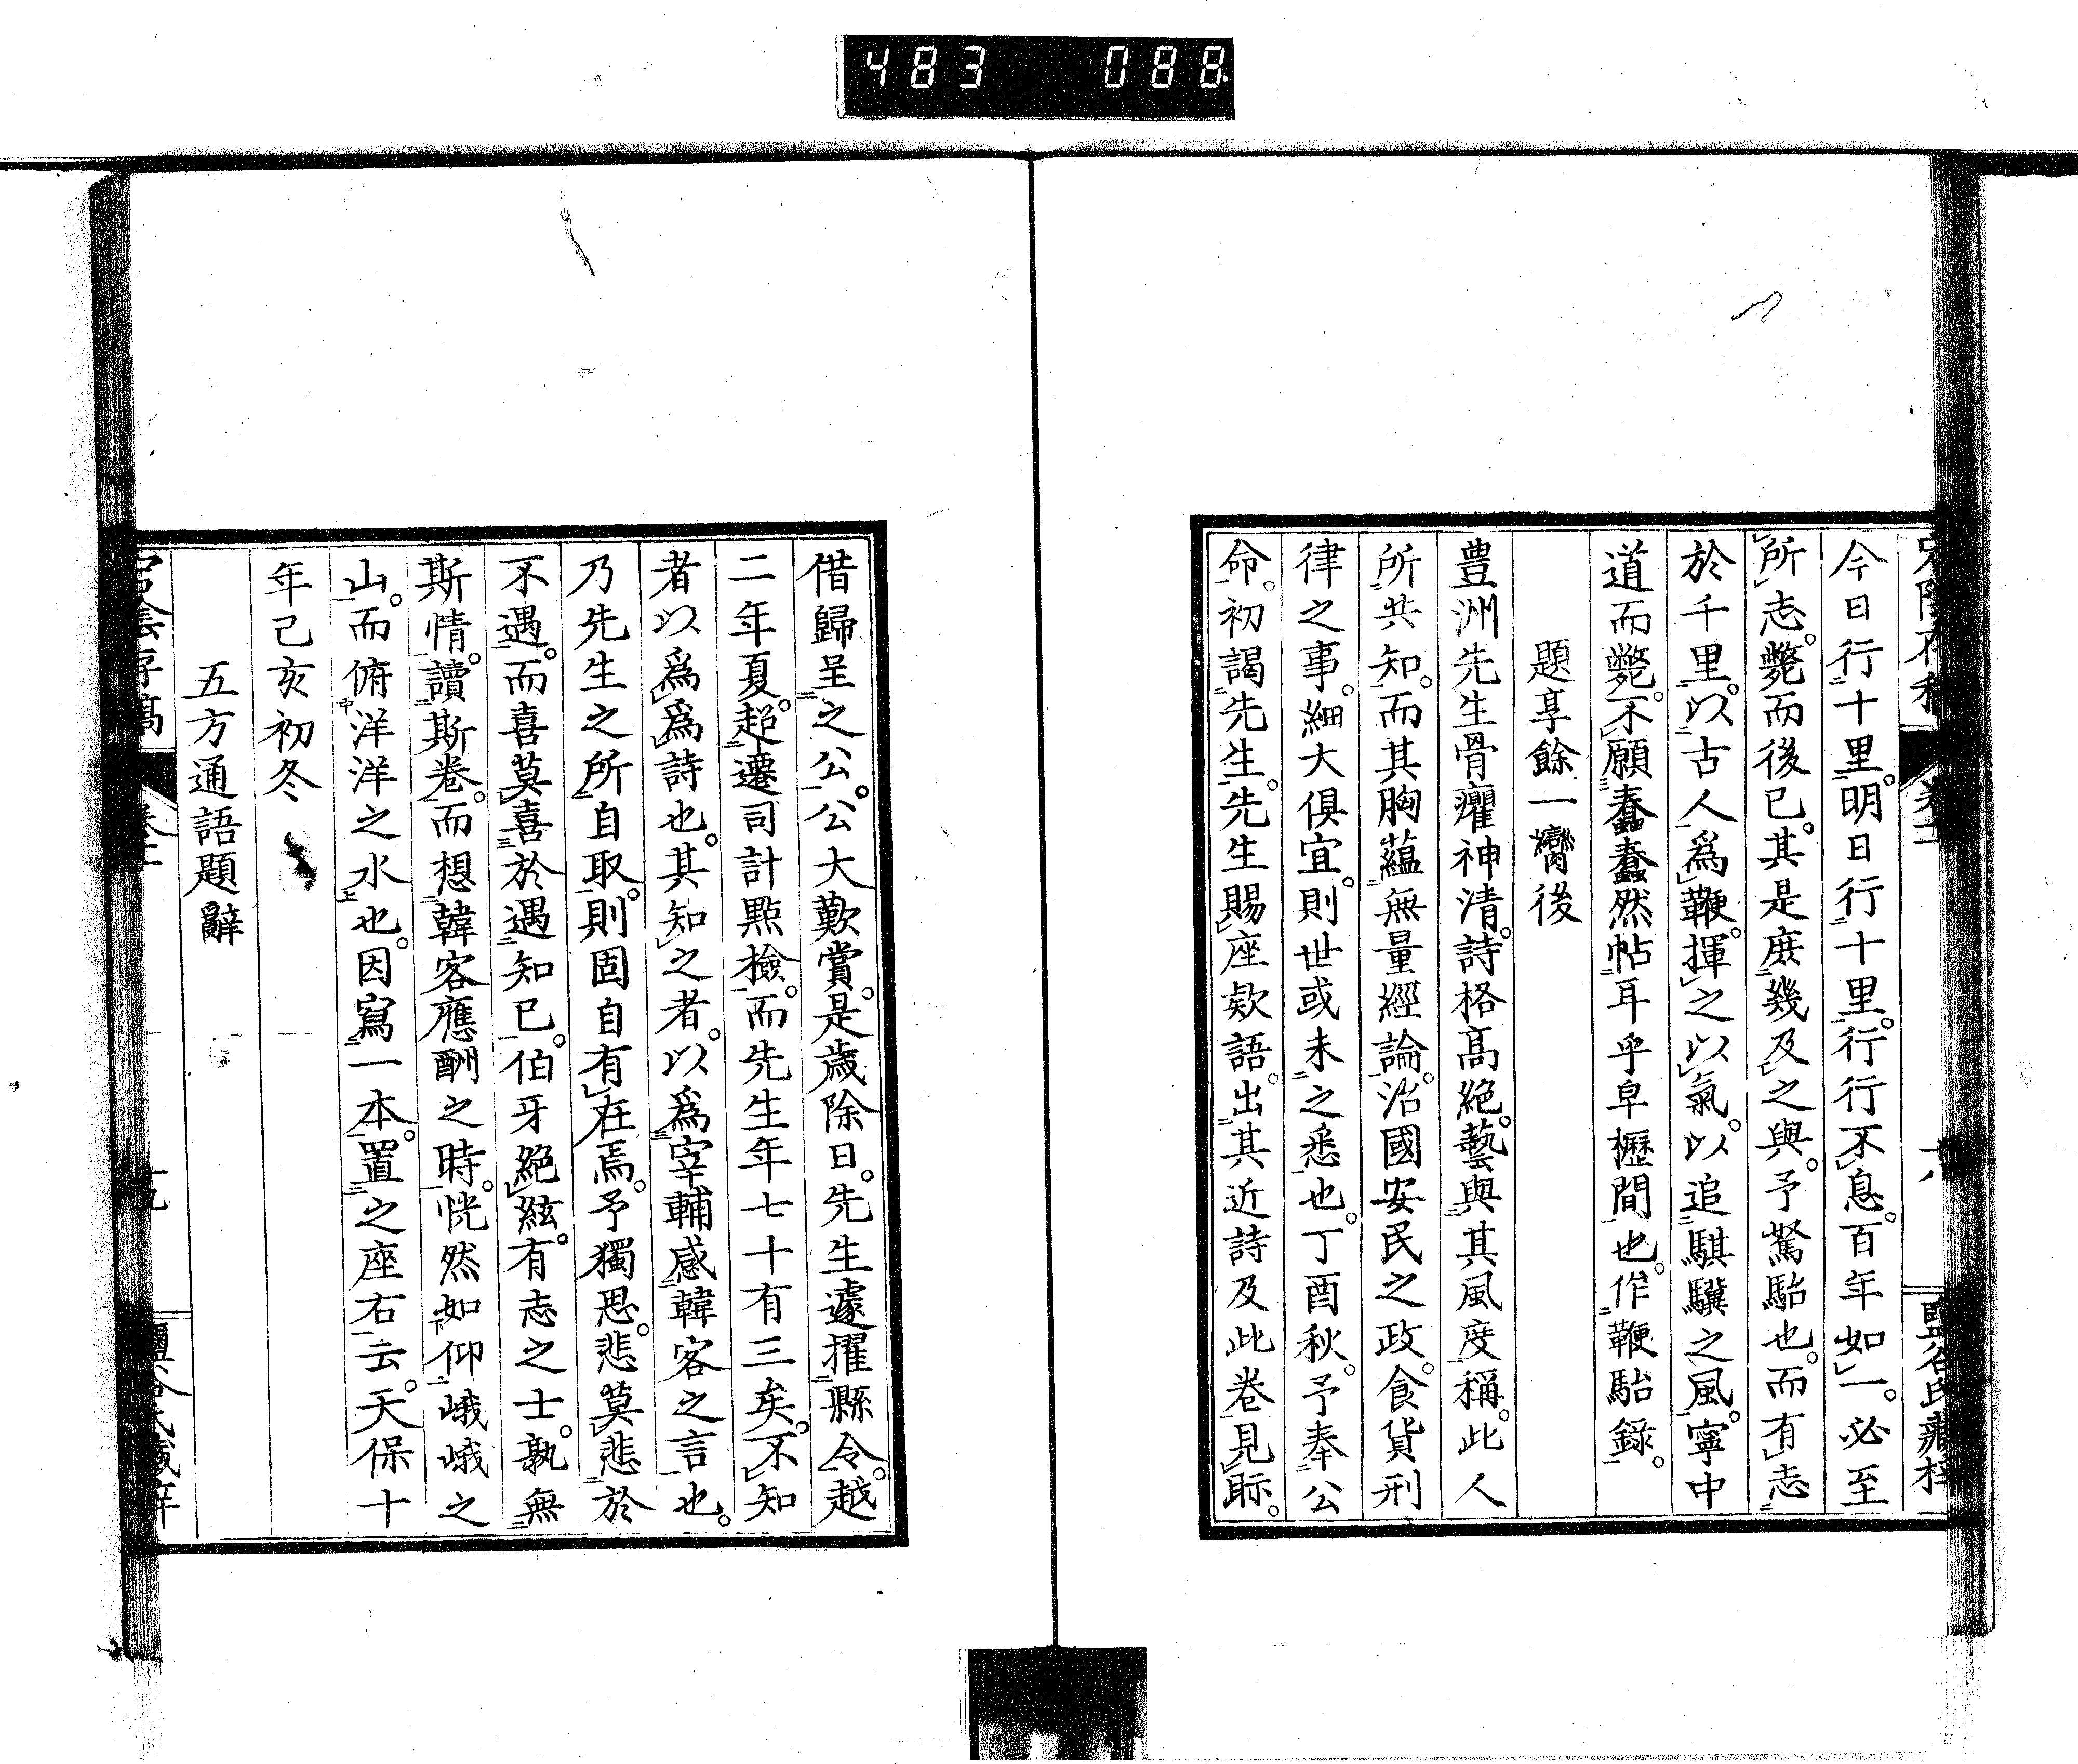 483 088
今日行十里。明日行十里。行行不息。百年如一。必至
所志。斃而後已。其是庶幾及之與。予駑駘也。而有志
於千里。以古人爲鞭。揮之以氣。以追騏驥之風。寧中
道而斃。不願蠢蠢然帖耳乎皁櫪間也。作鞭駘錄。
題享餘一臠後
豊洲先生骨癯神清。詩格高絕。藝與其風度稱。此人
所共知。而其胸蘊無量經論。治國安民之政。食貨刑
律之事。細大俱宜。則世或未之悉也。丁酉秋。予奉公
命。初謁先生。先生賜座欵語。出其近詩及此卷見眎。
借歸呈之公。公大歎賞。是歲除日。先生遽擢縣令。越
二年夏。超遷司計點檢。而先生年七十有三矣。不知
者以爲爲詩也。其知之者。以爲宰輔感韓客之言也。
乃先生之所自取。則固自有在焉。予獨思。悲莫悲於
不遇。而喜莫喜於遇知已。伯牙絕絃。有志之士。孰無
斯情。讀斯卷。而想韓客應酬之時。恍然如仰峨峨之
山。而俯洋洋之水也。因寫一本。置之座右云。天保十
年己亥初冬
五方通語題辭